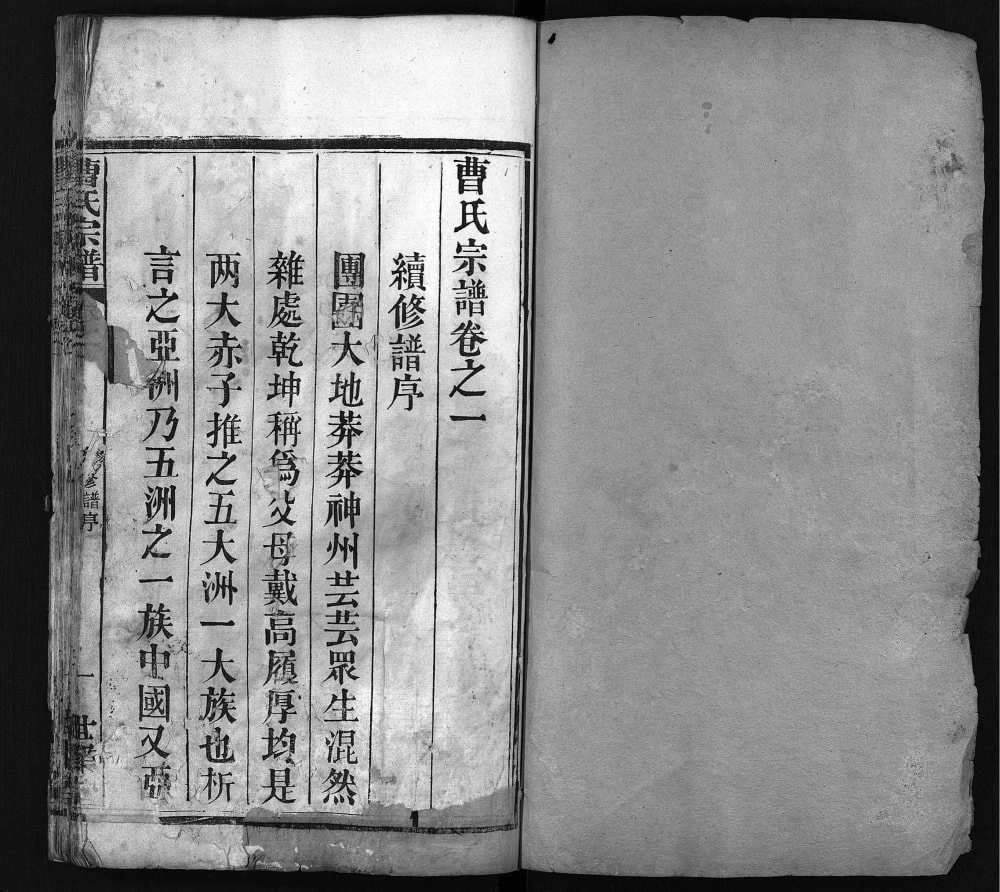 曹氏宗譜卷之一
續修譜序
團團大地莽莽神州芸芸眾生混然
雜處乾坤稱爲父母戴高履厚均是
两大赤子推之五大洲一大族也析
言之亞洲乃五洲之一族中國又亞
曹氏宗譜
譜序
一
1